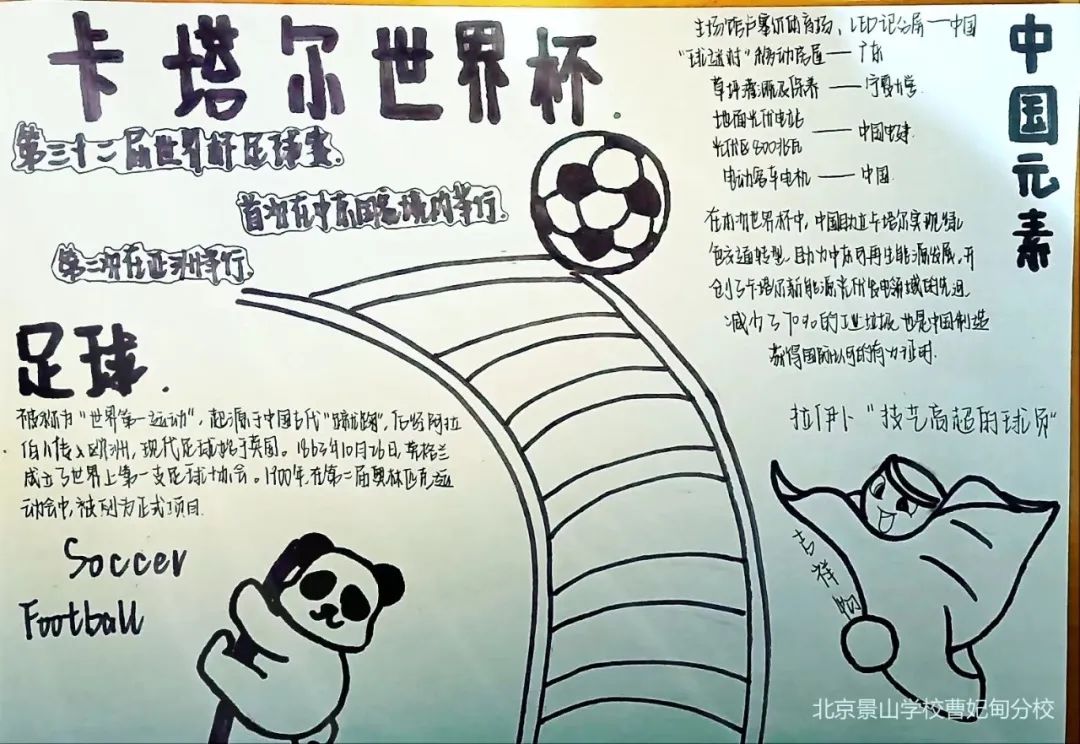 卡塔尔世界杯
第二十二届世界杯足球赛.
首次在中东国家境内举行.
第二次在亚洲举行.
足球.
被称为“世界第一运动”，起源于中国古代“蹴鞠”，后经阿拉
伯人传入欧洲，现代足球始于英国。1863年10月26日，英格兰
成立了世界上第一支足球协会。1900年，在第二届奥林匹克运
动会中，被列为正式项目.
Soccer
Football
中国元素
主场馆卢塞尔体育场、LED记分屏——中国
“球迷村”移动房屋——广东
草坪灌溉及保养——宁夏大学.
地面光伏电站
光伏区800兆瓦——中国电建.
电动客车电机——中国.
在本次世界杯中，中国助力卡塔尔实现绿
色交通转型、助力中东可再生能源发展，开
创了卡塔尔新能源光伏发电领域的先河.
减少了70%的工业垃圾 也是中国制造
获得国际认可的有力证明.
拉伊卜“技艺高超的球员”
吉祥物
北京景山学校曹妃甸分校